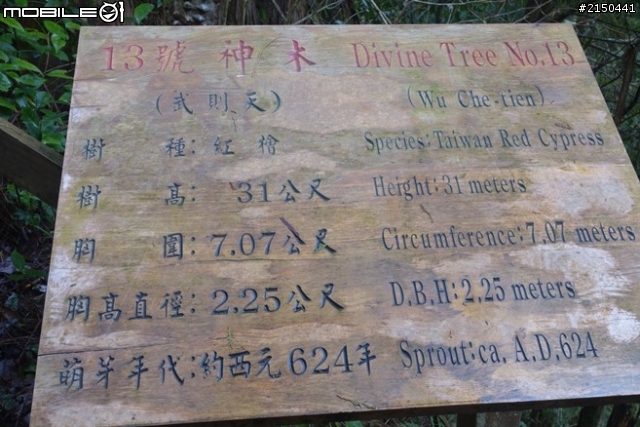 MOBILE01
#2150441
13號 神木 Divine Tree No.13
(武則天) (Wu Che-tien)
樹 種: 紅檜 Species: Taiwan Red Cypress
樹 高: 31公尺 Height: 31 meters
胸 圍: 7.07公尺 Circumference: 7.07 meters
胸高直徑: 2.25公尺 D.B.H: 2.25 meters
萌芽年代: 約西元 624年 Sprout: ca. A.D.624